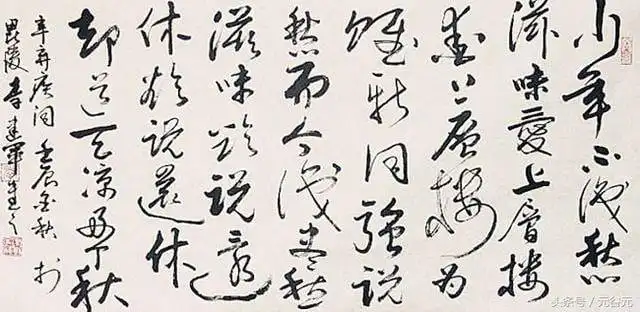 少年不識愁
滋味愛上層樓
愛上層樓为
賦新詞強說
愁而今識盡愁
滋味欲說還
休欲說還休
却道天凉好个秋
辛弃疾詞 壬辰金秋 於
毘陵
头条号 / 元谷元